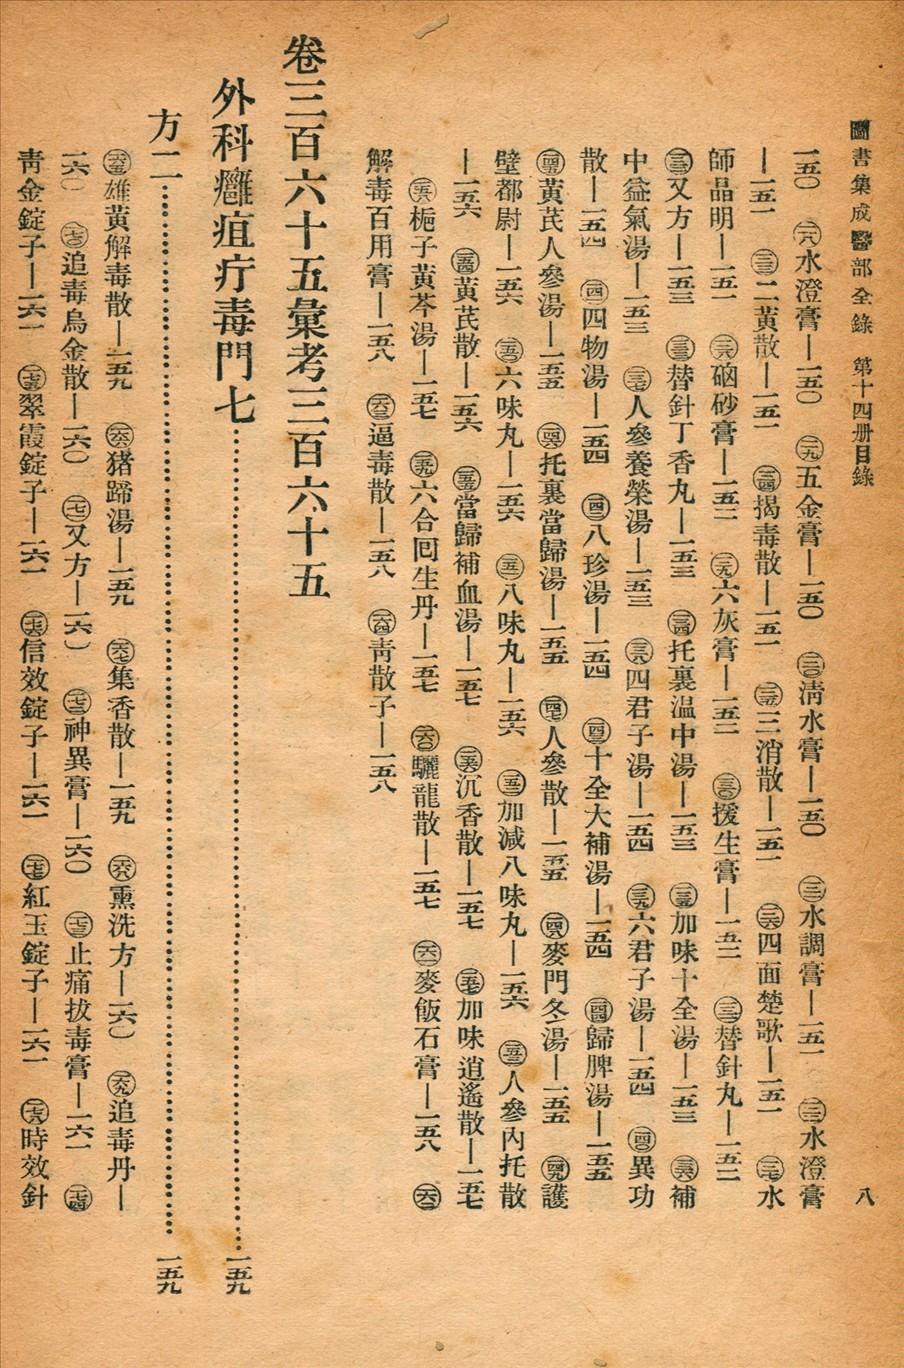 圖書集成醫部全錄　第十四册目錄　八
一五〇　(一一八)水澄膏—一五〇　(一一九)五金膏—一五〇　(一二〇)清水膏—一五〇　(一二一)水調膏—一五一　(一二二)水澄膏
—一五一　(一二三)二黃散—一五一　(一二四)揭毒散—一五一　(一二五)三消散—一五一　(一二六)四面楚歌—一五一　(一二七)水
師晶明—一五一　(一二八)硇砂膏—一五二　(一二九)六灰膏—一五二　(一三〇)援生膏—一五二　(一三一)替針丸—一五二
(一三二)又方—一五三　(一三三)替針丁香丸—一五三　(一三四)托裏溫中湯—一五三　(一三五)加味十全湯—一五三　(一三六)補
中益氣湯—一五三　(一三七)人參養榮湯—一五三　(一三八)四君子湯—一五四　(一三九)六君子湯—一五四　(一四〇)異功
散—一五四　(一四一)四物湯—一五四　(一四二)八珍湯—一五四　(一四三)十全大補湯—一五四　(一四四)歸脾湯—一五五
(一四五)黃芪人參湯—一五五　(一四六)托裏當歸湯—一五五　(一四七)人參散—一五五　(一四八)麥門冬湯—一五五　(一四九)護
壁都尉—一五六　(一五〇)六味丸—一五六　(一五一)八味丸—一五六　(一五二)加減八味丸—一五六　(一五三)人參內托散
—一五六　(一五四)黃芪散—一五六　(一五五)當歸補血湯—一五七　(一五六)沉香散—一五七　(一五七)加味逍遙散—一五七
(一五八)梔子黃芩湯—一五七　(一五九)六合回生丹—一五七　(一六〇)驪龍散—一五七　(一六一)麥飯石膏—一五八　(一六二)
解毒百用膏—一五八　(一六三)逼毒散—一五八　(一六四)靑散子—一五八
卷三百六十五彙考三百六十五
外科癰疽疔毒門七……一五九
方二……一五九
(一六五)雄黃解毒散—一五九　(一六六)猪蹄湯—一五九　(一六七)集香散—一五九　(一六八)熏洗方—一六〇　(一六九)追毒丹—
一六〇　(一七〇)追毒烏金散—一六〇　(一七一)又方—一六〇　(一七二)神異膏—一六〇　(一七三)止痛拔毒膏—一六一　(一七四)
靑金錠子—一六一　(一七五)翠霞錠子—一六一　(一七六)信效錠子—一六一　(一七七)紅玉錠子—一六一　(一七八)時效針